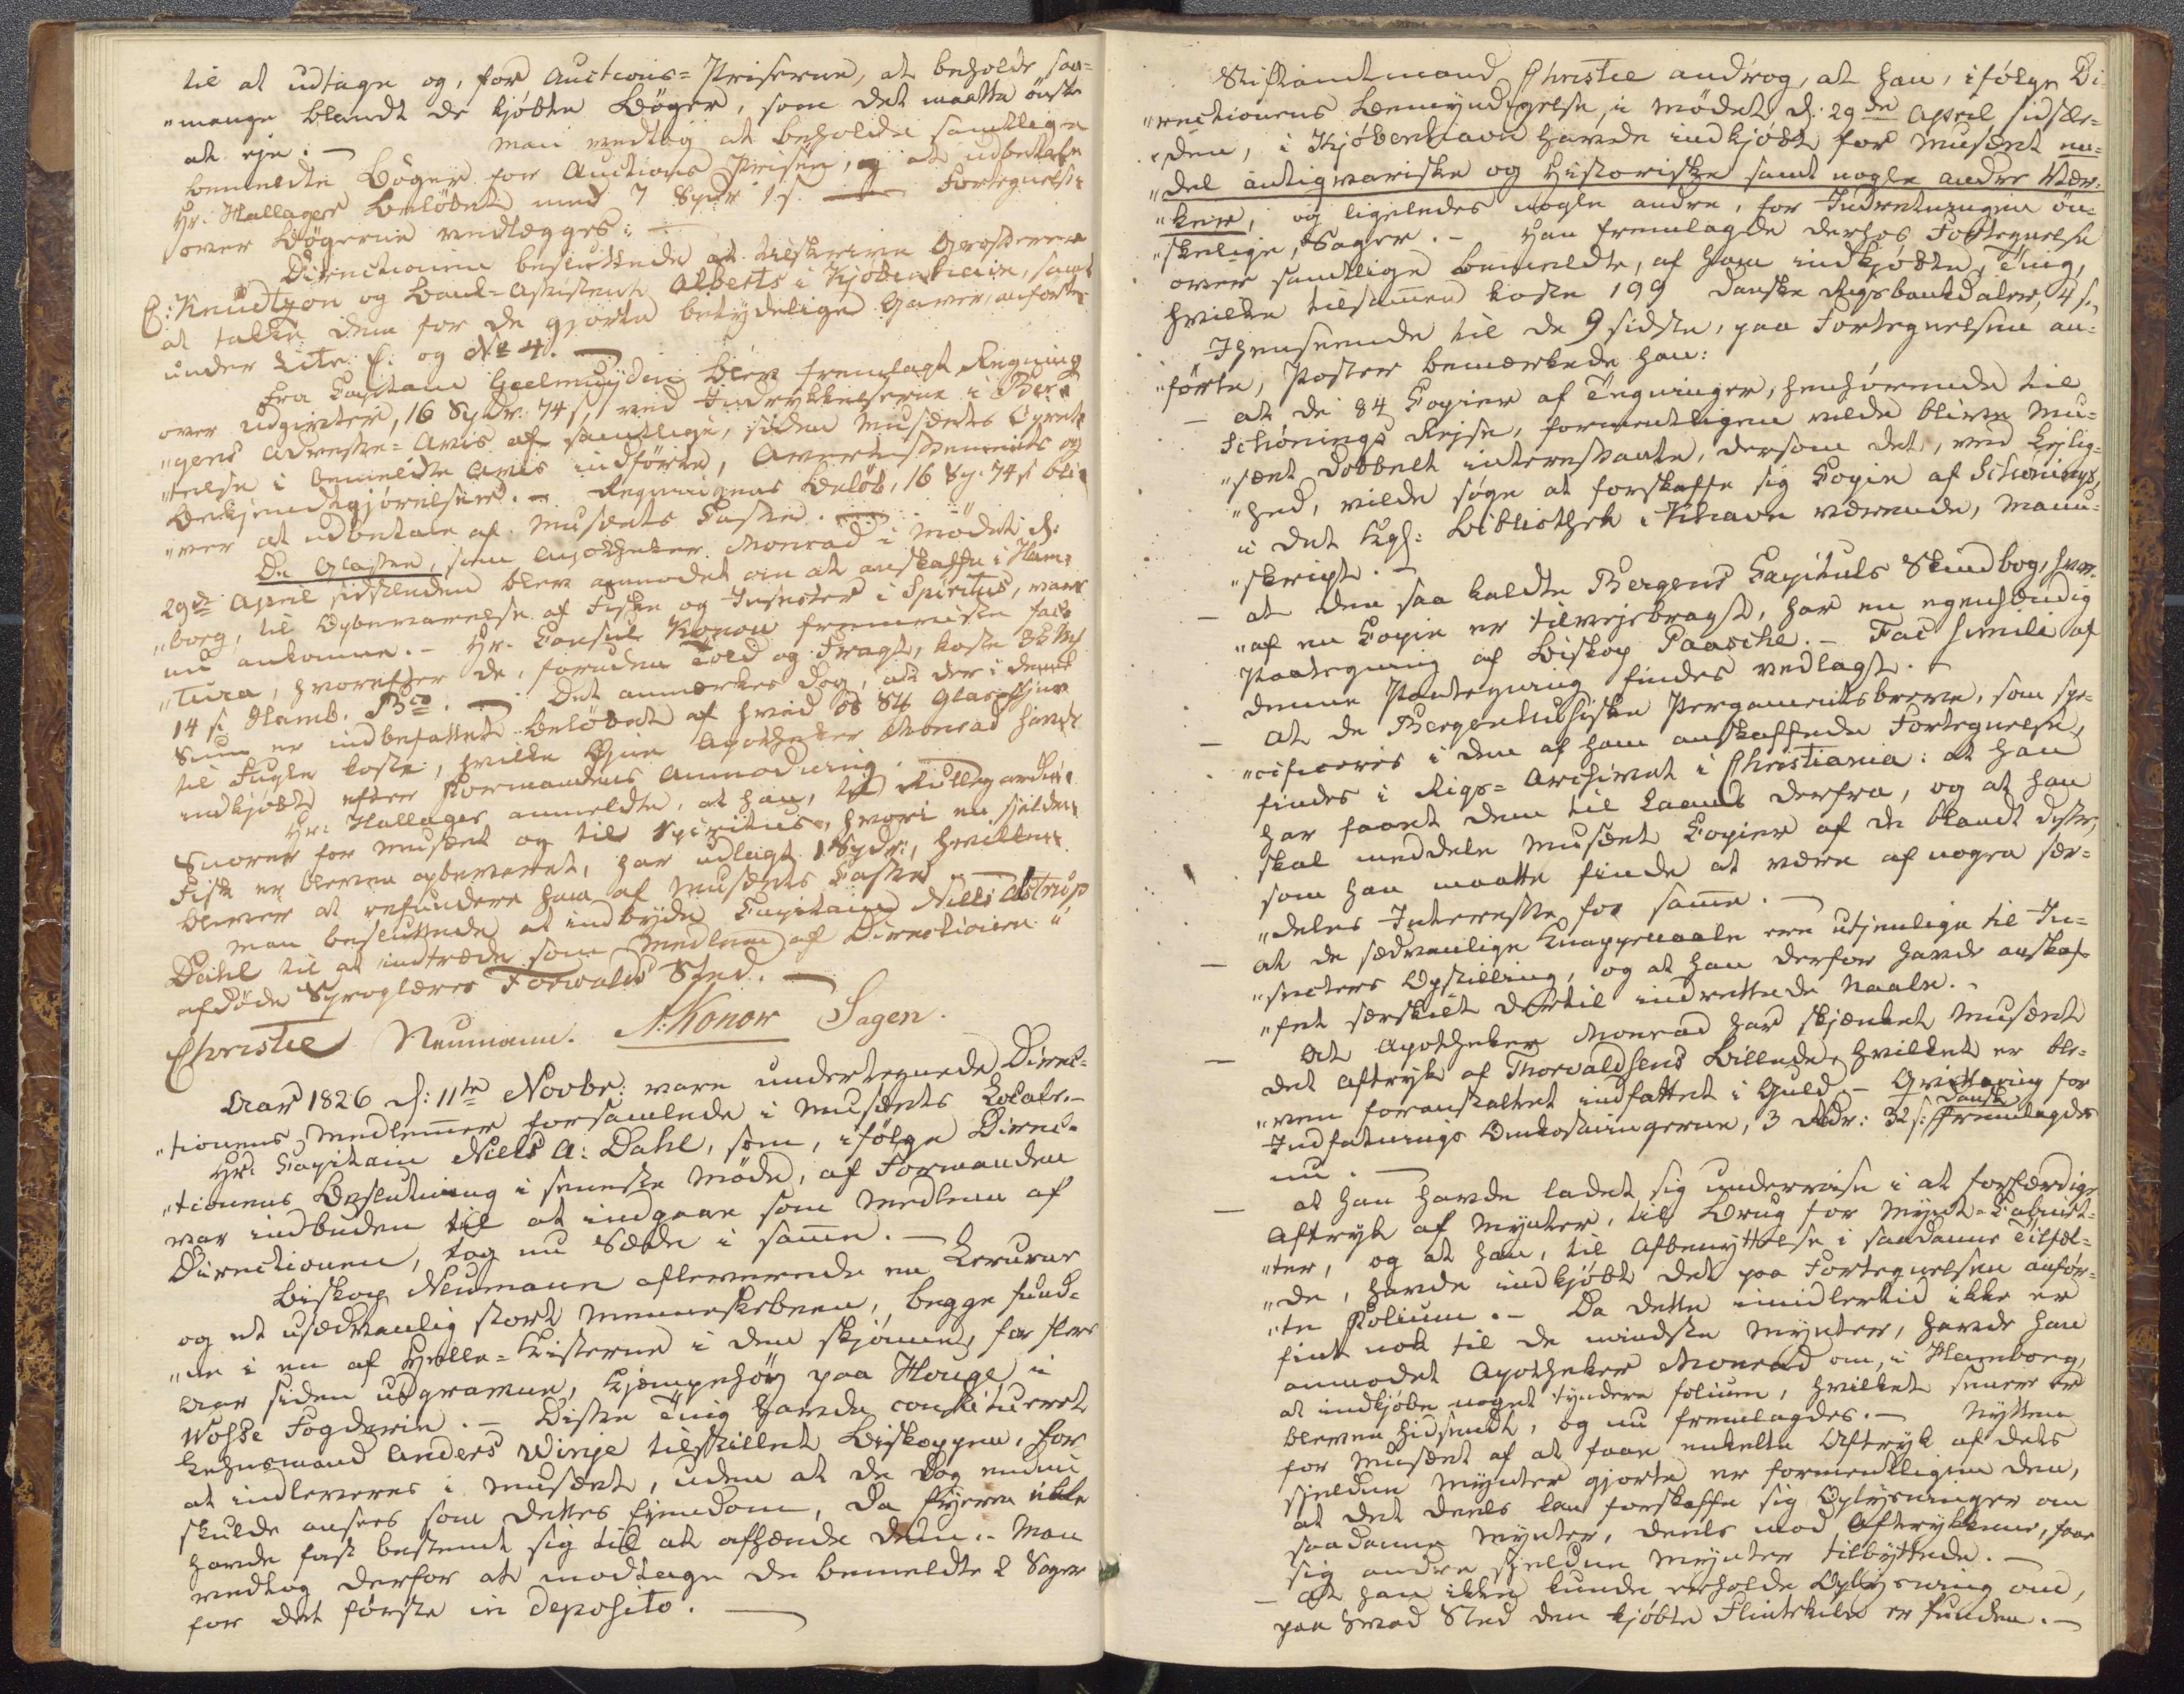 til at udtage og, for Auctions=Priserne, at beholde saa=
"mange blandt de kjøbte Bøger, som det maatte ønske
at eje. — Man vedtog at beholde samtlige
bemeldte Bøger for Auctions Prisen, og at udbetale
Hr. Hallager Beløbet med 7 Spdr 1 s. — Fortegnelse
over Bøgerne vedlægges: —
Directionen besluttede at tilskrive Grosserer
C: Knudtzon og Bank=Assistent Alberts i Kjøbenhavn, samt
at takke dem for de gjorte betydelige Gaver, anførte
under Litr. C: og No 4. —
Fra Capitain Geelmuyden blev fremlagt Regning
over Udgivter, 16 Spdr: 74 s, ved Indrykkelserne i Ber=
"gens Adresse=Avis af samtlige, siden Musæets Opret=
"telse i bemeldte Avis indførte, Avertissements og
Bekjendtgjørelser. — Regningens Beløb, 16 Sp. 74 s bli=
"ver at udbetale af Musæets Casse. —
De Glasse, som Apotheker Monrad i Mødet d:
29de April sidstleden blev anmodet om at anskaffe i Ham=
"borg, til Opbevarelse af Fiske og Insecter i Spiritus, vare
nu ankomne. — Hr. Consul Konow fremviste Fac=
"tura, hvorefter de, foruden Told og Fragt, koste 35 Mk
14 s. Hamb. Bco. — Det anmærkes dog, at der i denne
Sum er indbefattet Beløbet af hvid 88 St. Glasøjne
til Fugle koste, hvilke Øjne Apotheker Monrad havde
indkjøbt efter Formandens Anmodning. —
Hr: Hallager anmeldte, at han, til Rullegardin
Snorer for Musæet og til Spiritus, hvori en sjelden
Fisk er bleven opbevaret, har udlagt 1 Spdr:, hvilken
bliver at refundere ham af Musæets Casse. —
Man besluttede at indbyde Capitain Niels Astrup
Dahl til at indtræde som Medlem af Directionen i
afdøde Sproglærer Forwalds Sted. —
Christie Neumann. A. Konow Sagen.
Aar 1826 d: 11te Novbr: vare undertegnede Direc=
"tionens Medlemmer forsamlede i Musæets Locale. —
Hr. Capitain Niels A: Dahl, som, ifølge Direc=
"tionens Beslutning i seneste Møde, af Formanden
var indbuden til at indgaae som Medlem af
Directionen, tog nu Sæde i samme. —
Biskop Neumann afleverede en Leerurne
og et usædvanlig stort Menneskebeen, begge fund=
"ne i en af Helle=Kisterne i den skjønne, for flere
Aar siden udgravne, Kjæmpehøy paa Houge i
Vosse Fogderie. — Disse Ting havde constitueret
Lehnsmand Anders Vinje tilstillet Biskoppen, for
at indleveres i Musæet, uden at de dog endnu
skulde ansees som dettes Eiendom, da Eyeren ikke
havde fast bestemt sig til at afhænde dem. — Man
vedtog derfor at modtage de bemeldte 2 Sager
for det første in deposito. —
Stiftamtmand Christie androg, at han, ifølge Di=
"rectionens Bemyndigelse, i Mødet d: 29de April sidstle=
"den, i Kjøbenhavn havde indkjøbt for Musæet en=
"del antiqvariske og historiske samt nogle andre Vær=
"ker, og ligeledes nogle andre, for Indretningen øn=
"skelige, Sager. — Han fremlagde derhos Fortegnelse
over samtlige bemeldte, af ham indkjøbte, Ting,
hvilke tilsammen koste 199 danske Rigsbankdaler, 4 s.,
I Henseende til de 9 sidste, paa Fortegnelsen an=
"førte, Poster bemærkede han:
— at de 84 Copier af Tegninger, henhørende til
Schønings Rejse, formentligen vilde blive Mu=
"sæet dobbelt interessante, dersom det, ved Lejlig=
"hed, vilde søge at forskaffe sig Copie af Schønings,
i det kgl: Bibliothek i Khavn værende, Manu=
"skript. —
— at den saa kaldte Bergens Capituls Skindbog, hvor=
"af en Copie er tilvejebragt, har en egenhændig
Paategning af Biskop Paasche. — Fac simile af
denne Paategning findes vedlagt. —
— at de Bergenhusiske Pergamentsbreve, som spe=
"cificeres i den af ham anskaffede Fortegnelse,
findes i Rigs=Archivet i Christiania: at han
har faaet dem til Laans derfra, og at han
skal meddele Musæet Copier af de blandt disse,
som han maatte finde at være af nogen sær=
"deles Interesse for samme. —
— at de sædvanlige Knappenaale ere utjenlige til In=
"secters Opstilling, og at han derfor havde anskaf=
"fet særskilt dertil indrettede Naale. —
— at Apotheker Monrad har skjænket Musæet
det Aftryk af Thorvaldsens Billede, hvilket er ble=
"ven foranstaltet indfattet i Guld. — Qvittering for
Indfatnings Omkostningerne, 3 Rdr: 32 s: Dansk fremlagdes
nu. —
— at han havde ladet sig underviise i at forfærdige
Aftryk af Mynter, til Brug for Mynt=Cabinet=
"ter, og at han, til Afbenyttelse i saadanne Tilfæl=
"de, havde indkjøbt det paa Fortegnelsen anfør=
"te Folium. — Da dette imidlertid ikke er
fint nok til de mindste Mynter, havde han
anmodet Apotheker Monrad om, i Hamborg,
at indkjøbe noget tyndere folium, hvilket senere er
bleven hidsendt, og nu fremlagdes. — Nytten
for Musæet af at faae enkelte Aftryk af dets
sjeldne Mynter gjorte er formentligen den,
at det deels kan forskaffe sig Oplysninger om
saadanne Mynter, deels mod Aftrykkene, faae
sig andre sjeldne Mynter tilbyttede. —
— at han ikke kunde erholde Oplysning om,
paa hvad Sted den kjøbte Flintkile er funden. —